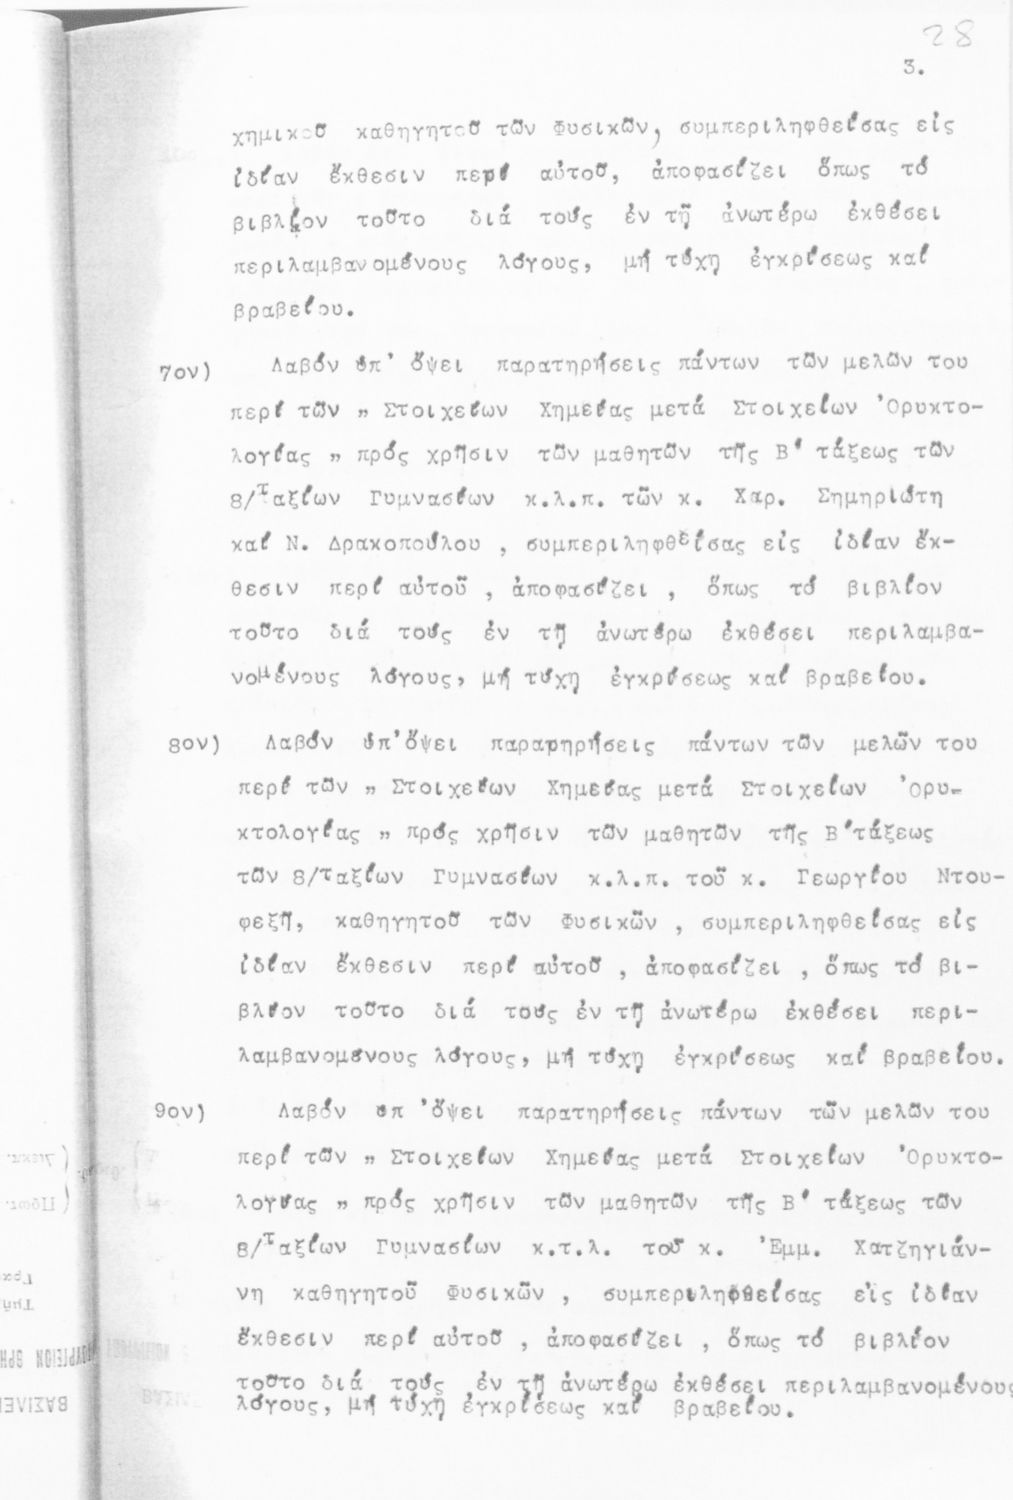 28
3.
χημικοῦ καθηγητοῦ τῶν Φυσικῶν, συμπεριληφθείσας εἰς
ἰδίαν ἔκθεσιν περί αὐτοῦ, ἀποφασίζει ὅπως τό
βιβλίον τοῦτο διά τούς ἐν τῇ ἀνωτέρω ἐκθέσει
περιλαμβανομένους λόγους, μή τύχῃ ἐγκρίσεως καί
βραβείου.
7ον) Λαβόν ὑπ' ὄψει παρατηρήσεις πάντων τῶν μελῶν του
περί τῶν „ Στοιχείων Χημείας μετά Στοιχείων Ὀρυκτο-
λογίας „ πρός χρῆσιν τῶν μαθητῶν τῆς Β' τάξεως τῶν
8/Ταξίων Γυμνασίων κ.λ.π. τῶν κ. Χαρ. Σημηριώτη
καί Ν. Δρακοπούλου , συμπεριληφθείσας εἰς ἰδίαν ἔκ-
θεσιν περί αὐτοῦ , ἀποφασίζει , ὅπως τό βιβλίον
τοῦτο διά τούς ἐν τῇ ἀνωτέρω ἐκθέσει περιλαμβα-
νομένους λόγους, μή τύχῃ ἐγκρίσεως καί βραβείου.
8ον) Λαβόν ὑπ' ὄψει παρατηρήσεις πάντων τῶν μελῶν του
περί τῶν „ Στοιχείων Χημείας μετά Στοιχείων Ὀρυ-
κτολογίας „ πρός χρῆσιν τῶν μαθητῶν τῆς Β' τάξεως
τῶν 8/ταξίων Γυμνασίων κ.λ.π. τοῦ κ. Γεωργίου Ντου-
φεξῆ, καθηγητοῦ τῶν Φυσικῶν , συμπεριληφθείσας εἰς
ἰδίαν ἔκθεσιν περί αὐτοῦ , ἀποφασίζει , ὅπως τό βι-
βλίον τοῦτο διά τούς ἐν τῇ ἀνωτέρω ἐκθέσει περι-
λαμβανομένους λόγους, μή τύχῃ ἐγκρίσεως καί βραβείου.
9ον) Λαβόν ὑπ 'ὄψει παρατηρήσεις πάντων τῶν μελῶν του
περί τῶν „ Στοιχείων Χημείας μετά Στοιχείων Ὀρυκτο-
λογίας „ πρός χρῆσιν τῶν μαθητῶν τῆς Β' τάξεως τῶν
8/Ταξίων Γυμνασίων κ.τ.λ. τοῦ κ. Ἐμμ. Χατζηγιάν-
νη καθηγητοῦ Φυσικῶν , συμπεριληφθείσας εἰς ἰδίαν
ἔκθεσιν περί αὐτοῦ , ἀποφασίζει , ὅπως τό βιβλίον
τοῦτο διά τούς ἐν τῇ ἀνωτέρω ἐκθέσει περιλαμβανομένους
λόγους, μή τύχῃ ἐγκρίσεως καί βραβείου.